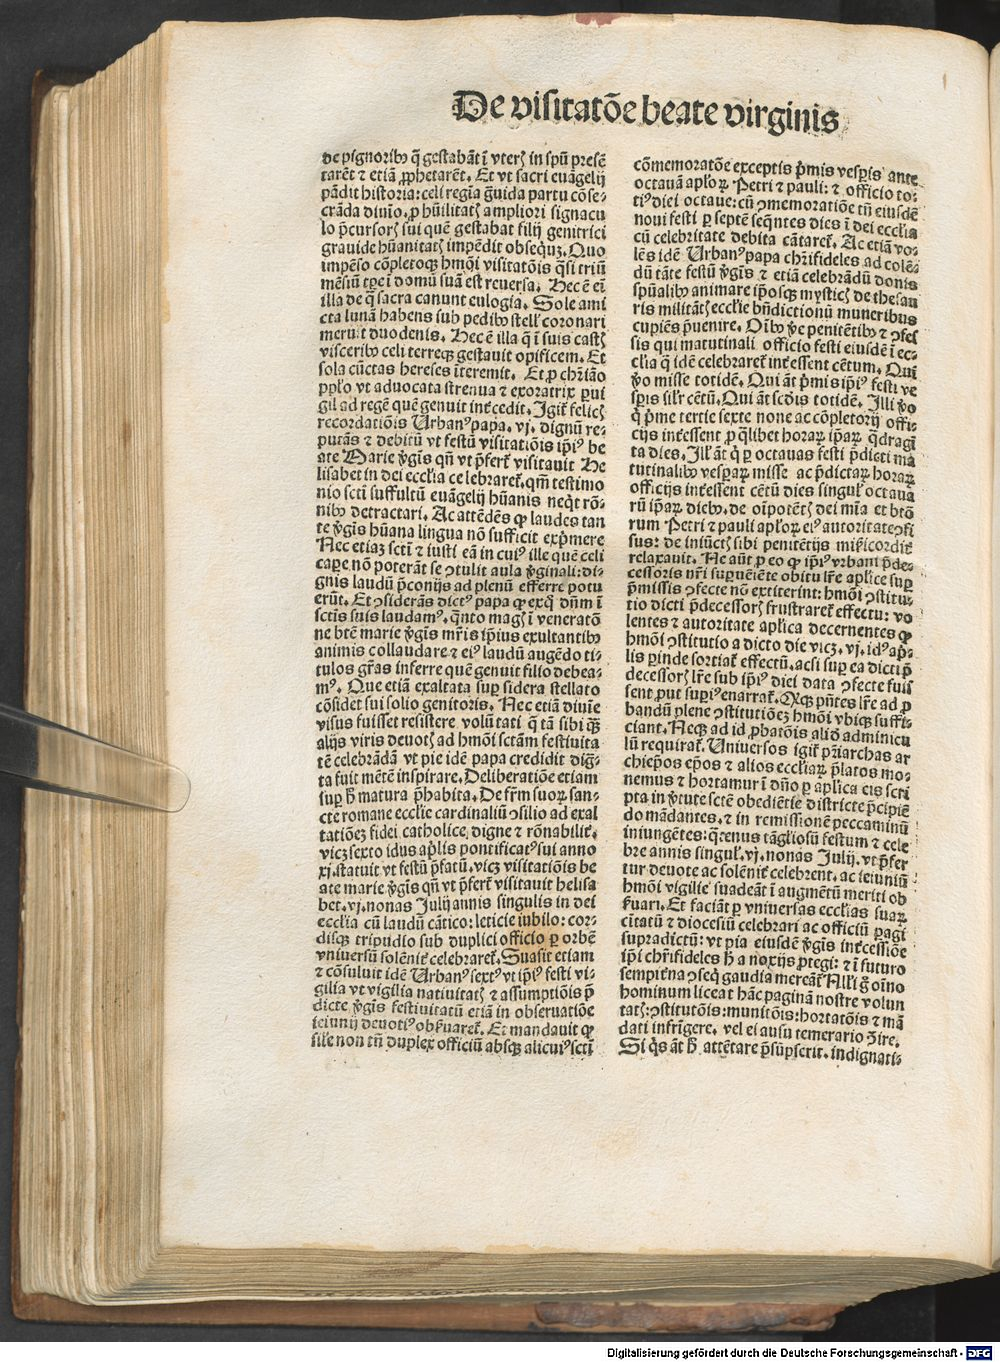 De visitatōe beate virginis
de pignoribꝰ q̄ gestabāt ī vterꝭ in spū presē
tarēt ⁊ etiā ꝓphetarēt. Et vt sacri euāgelij
pādit historia: celi regīa grauida partu cōse⸗
crāda diuīo. ꝓ hūilitatꝭ ampliori signacu
lo p̄cursorꝭ sui quē gestabat filij genitrici
grauide hūanitatꝭ impēdit obsequꝫ. Quo
impēso cōpletoqꝫ hmōi visitatōis q̄si triū
mēsiū tꝑe ī domū suā est reuersa. Hec ē em̄
illa de q̄ sacra canunt eulogia. Sole ami
cta lunā habens sub pedibꝰ stell' coronari
meruit duodenis. Hec ē illa q̄ ī suis castꝭ
visceribꝰ celi terreqꝫ gestauit opificem. Et
sola cūctas hereses īteremit. Et ꝓ chr̄iāo
pplo vt aduocata strenua ⁊ exoratrix ꝑui
gil ad regē quē genuit int̄cedit. Igit̄ felicꝭ
recordatiōis Urbanꝰ papa. vj. dignū re⸗
putās ⁊ debitū vt festū visitatiōis ip̄iꝰ be
ate Marie ꝟgīs qn̄ vt p̄fert̄ visitauit He
lisabet in dei ecclīa celebraret̄. qm̄ testimo
nio sctī suffultū euāgelij hūanis neqͥt rō⸗
nibꝰ detractari. Ac attēdēs ꝙ laudes tan
te ꝟgīs hūana lingua nō sufficit exp̄mere
Nec etiaꝫ sctī ⁊ iusti eā in cuiꝰ ille quē celi
capere nō poterāt se ꝯtulit aula ꝟginali: di⸗
gnis laudū p̄conijs ad plenū efferre potu
erūt. Et ꝯsiderās dictꝰ papa ꝙ exqͦ dn̄m ī
sctīs suis laudamꝰ. q̄nto magꝭ ī veneratō
ne btē marie ꝟgīs mr̄is ip̄ius exultantibꝰ
animis collaudare ⁊ eiꝰ laudū augēdo ti⸗
tulos gr̄as inferre quē genuit filio debea⸗
mꝰ. Que etiā exaltata suꝑ sidera stellato
cōsidet sui solio genitoris. Nec etiā diuīe
visus fuisset resistere volūtati q̄ tā sibi qͣꝫ
alijs viris deuotꝭ ad hmōi sctām festiuita
tē celebrādā vt pie idē papa credidit dig⸗
ta fuit mēte inspirare. Deliberatiōe etiam
suꝑ h̄ matura p̄habita. De fr̄m suoꝝ san⸗
cte romane ecclīe cardinaliū ꝯsilio ad exal
tatiōeꝫ fidei catholice, digne ⁊ rōnabilit̄.
vicꝫ sexto idus apͥlis pontificatꝰ sui anno
xj. statuit vt festū p̄fatū. vicꝫ visitatiōis be
ate marie ꝟgīs qn̄ vt p̄fert̄ visitauit helisa
bet. vj. nonas Julij annis singulis in dei
ecclīa cū laudū cātico: leticie iubilo: cor⸗
disqꝫ tripudio sub duplici officio ꝑ orbē
vniuersū solēnit̄ celebraret̄. Suasit etiam
⁊ cōsuluit idē Urbanꝰ sextꝰ vt ip̄iꝰ festi vi⸗
gilia vt vigilia natiuitatꝭ ⁊ assumptiōis p̄
dicte ꝟgīs festiuitatū etiā in obseruatiōe
ieiunij deuotiꝰ obẜuaret̄. Et mandauit ꝙ
sil'e non tm̄ duplex officiū absqꝫ alicuiꝰ sctī
cōmemoratōe exceptis p̄mis vesꝑis ante
octauā apl'oꝝ Petri ⁊ pauli: ⁊ officio to⸗
tiꝰ diei octaue: cū ꝯmemoratiōe tn̄ eiusdē
noui festi ꝑ septē seqn̄tes dies ī dei ecclīa
cū celebritate debita cātaret̄. Ac etiā vo⸗
lēs idē Urbanꝰ papa chr̄ifideles ad colē⸗
dū tāte festū ꝟgīs ⁊ etiā celebrādū donis
spūalibꝰ animare ip̄osqꝫ mysticꝭ de thesau
ris militātꝭ ecclīe bn̄dictionū muneribus
cupiēs p̄uenire. Oībꝰ ꝟe penitētibꝰ ⁊ ꝯfes
sis qui matutinali officio festi eiusdē ī ec⸗
clīa q̄ idē celebraret̄ int̄essent cētum. Qui
ꝟo misse totidē. Qui āt p̄mis ip̄iꝰ festi ve
sꝑis sil'r cētū. Qui āt scd̄is totidē. Illi ꝟo
q̄ p̄me tertie sexte none ac cōpletorij offi⸗
cijs int̄essent ꝓ qͣlibet horaꝝ ip̄aꝝ q̄dragī
ta dies. Ill' āt q̄ ꝑ octauas festi p̄dicti ma
tutinalibꝰ vesꝑaꝝ misse ac p̄dictaꝝ horaꝝ
officijs int̄essent cētū dies singul' octaua
rū ip̄aꝝ diebꝰ. de oīpotētꝭ dei mīa et btō
rum Petri ⁊ pauli apl'oꝝ eiꝰ autoritate ꝯfi
sus: de iniūctꝭ sibi penitētijs misēricordit̄
relaxauit. Ne aūt ꝓ eo ꝙ ip̄iꝰ vrbani p̄de⸗
cessoris nr̄i suꝑueniēte obitu lr̄e apl'ice suꝑ
p̄missis ꝯfecte nō extiterint: hmōi ꝯstitu⸗
tio dicti p̄decessorꝭ frustraret̄ effectu: vo
lentes ⁊ autoritate apl'ica decernentes ꝙ
hmōi ꝯstitutio a dicto die vicꝫ. vj. idꝰ ap̄⸗
lis ꝑinde sortiat̄ effectū. acsi suꝑ ea dicti p̄
decessorꝭ lr̄e sub ip̄iꝰ diei data ꝯfecte fuis
sent ꝓut suꝑiꝰ enarrat̄. Qꝫqꝫ pn̄tes lr̄e ad ꝓ
bandū plene ꝯstitutiōeꝫ hmōi vbiqꝫ suffi⸗
ciant. Neqꝫ ad id ꝓbatōis aliō adminicu
lū requirat̄. Uniuersos igit̄ pr̄iarchas ar
chiep̄os ep̄os ⁊ alios eccliaꝝ p̄latos mo⸗
nemus ⁊ hortamur ī dn̄o ꝑ apl'ica eis scti
pta in ꝟtute sctē obediētie districte p̄cipiē
do mādantes. ⁊ in remissionē peccaminū
iniungētes: q̄tenus tā gl'iosū festum ⁊ cele
bre annis singul'. vj. nonas Julij. vt p̄fer
tur deuote ac solēnit̄ celebrent. ac ieiuniū
hmōi vigilie suadeāt ī augmētū meriti ob
ẜuari. Et faciāt ꝑ vniuersas ecclīas suaꝝ
citatū ⁊ diocesiū celebrari ac officiū ꝑagi
supradictū: vt pia eiusdē ꝟgīs int̄cessiōe
ip̄i chr̄ifideles h̄ a noxijs ꝓtegi: ⁊ ī futuro
sempit̄na ꝯseqͥ gaudia mereāt̄ Nll'i ḡ oīno
hominum liceat hāc paginā nostre volun
tatꝭ: ꝯstitutōis: munitōis: hortatōis ⁊ mā
dati infrīgere. vel ei ausu temerario ꝯͣire.
Si qͥs āt h̄ attētare p̄sūpserit. indignati⸗
Digitalisierung gefördert durch die Deutsche Forschungsgemeinschaft - DFG